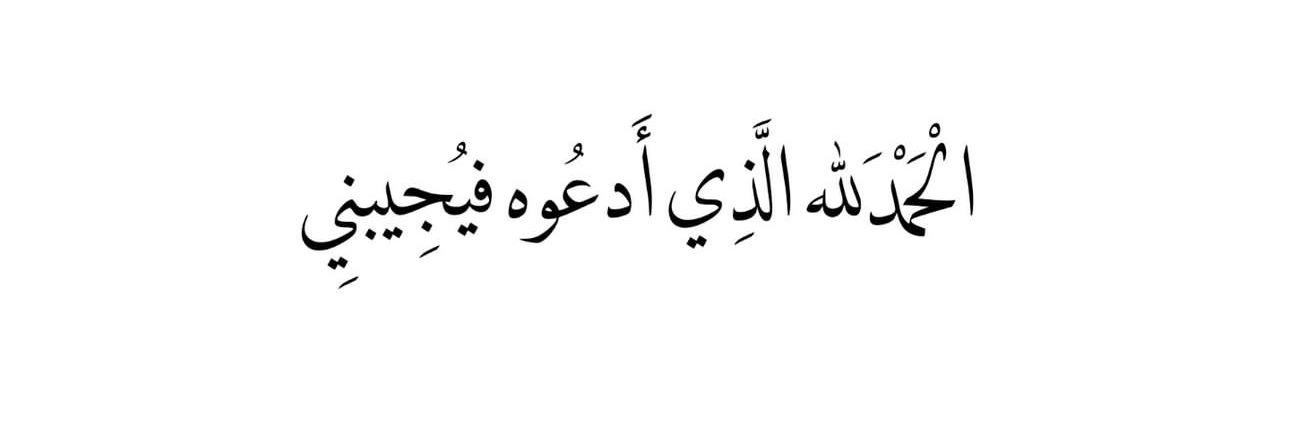 الْحَمْدَلله الَّذِي أَدعُوه فيُجِيبنِي